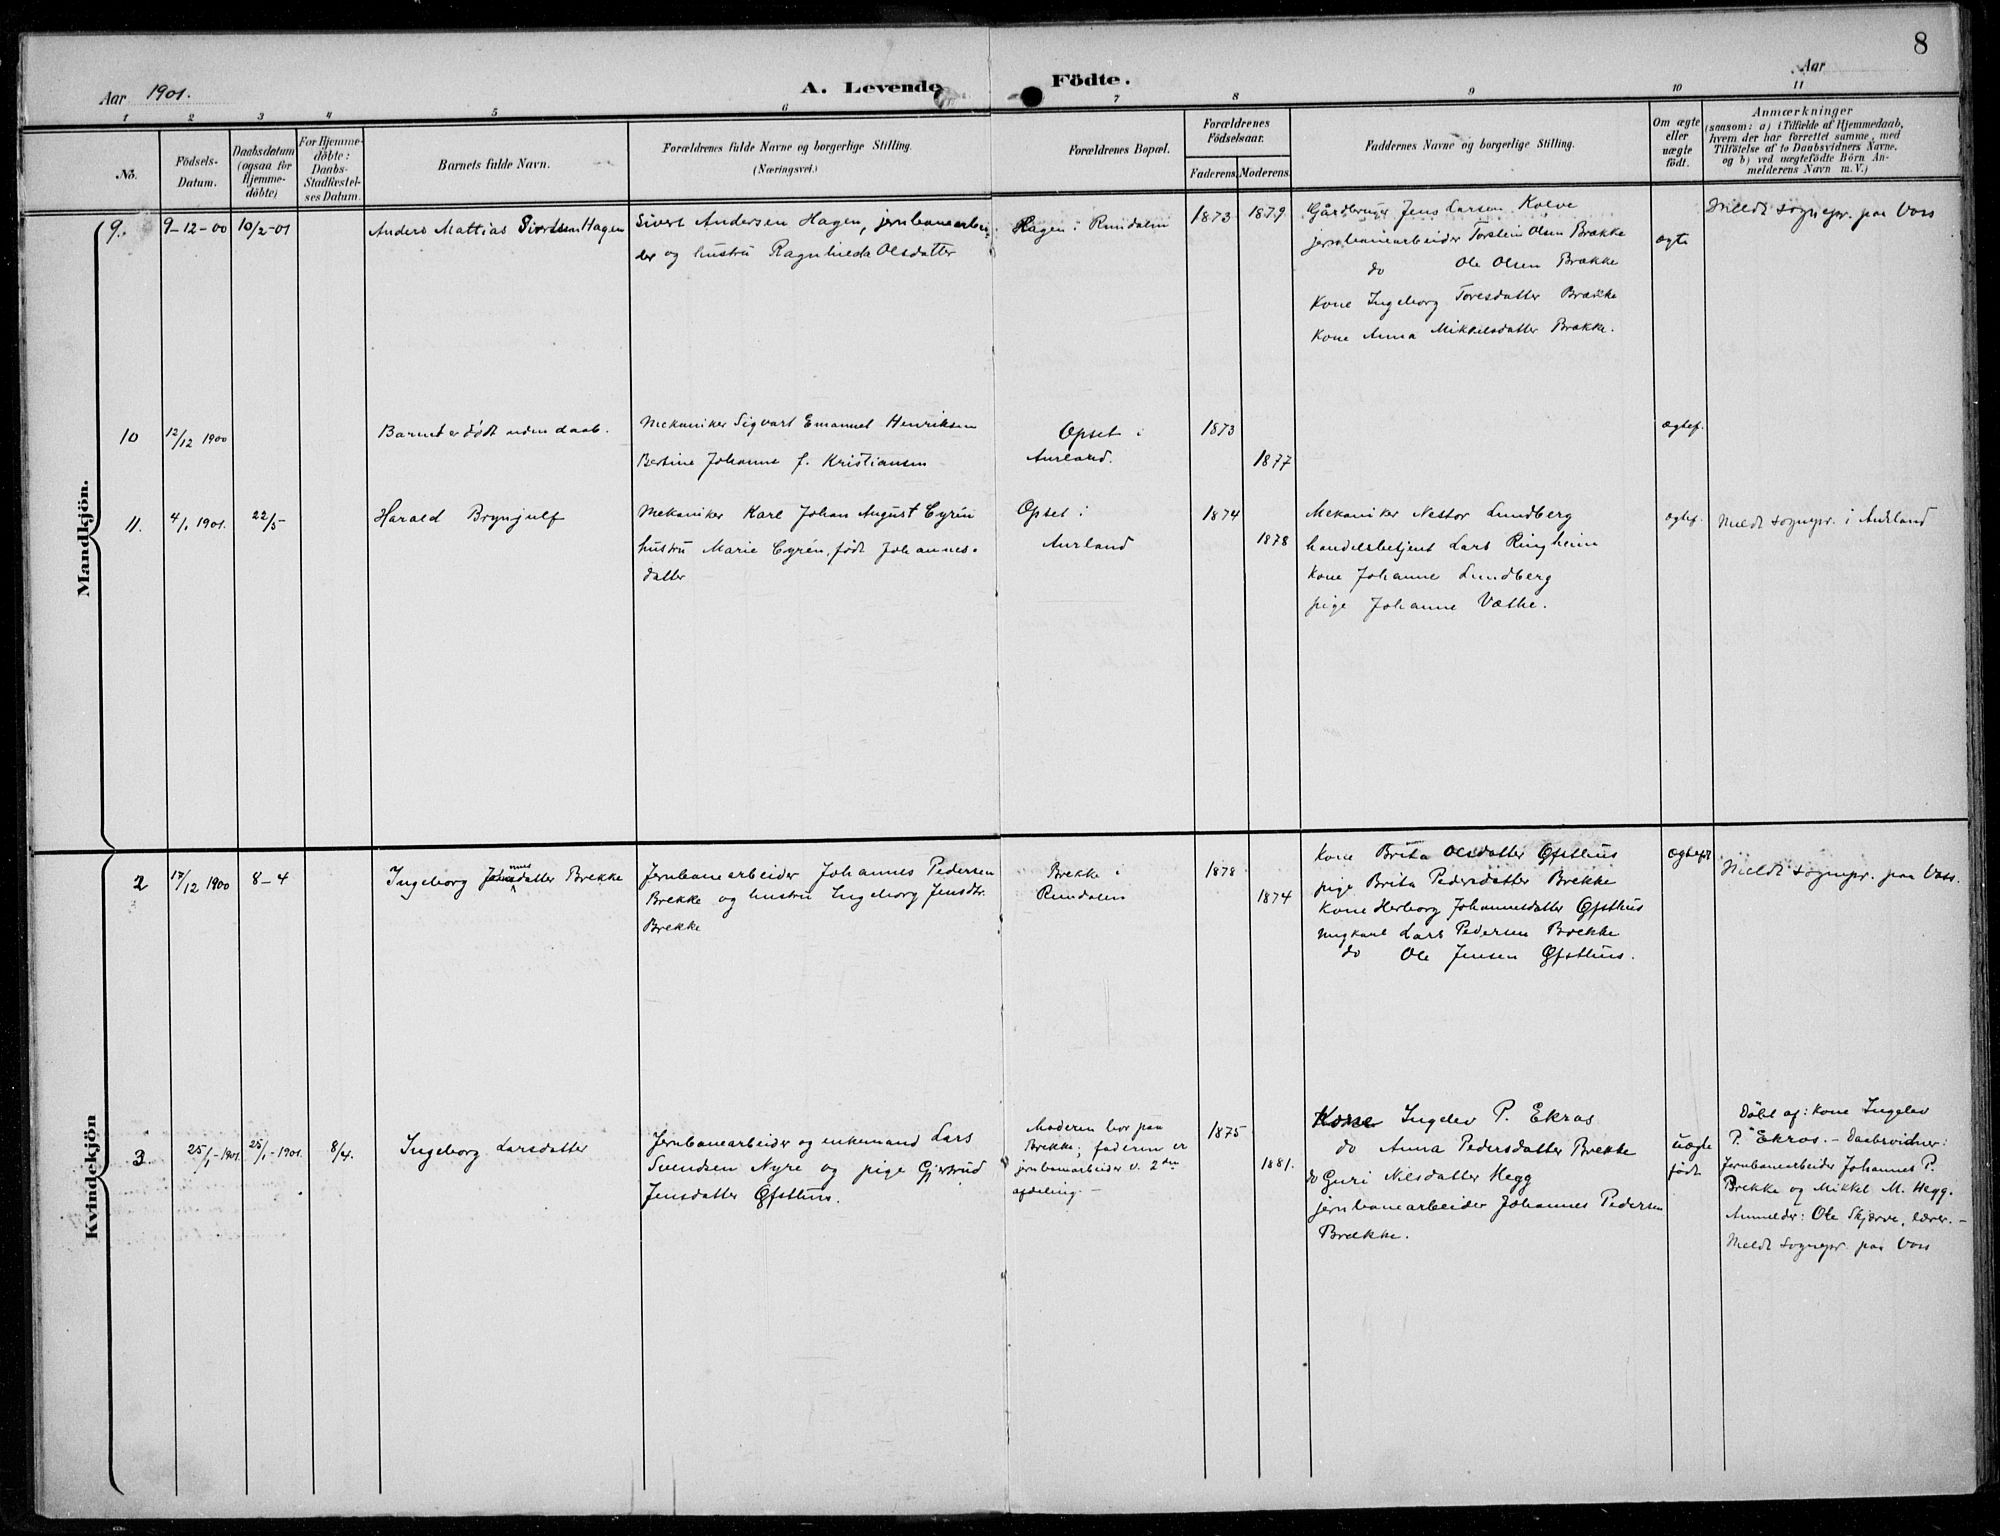 8
Aar 1901.
A. Levende Födte.
Aar
1 2 3 4 5 6 7 8 9 10 11
No.
Födsels-
Datum.
Daabsdatum
(ogsaa for
Hjemme-
döbte)
For Hjemme-
döbte:
Daabs-
Stadfestel-
ses Datum.
Barnets fulde Navn.
Forældrenes fulde Navne og borgerlige Stilling.
(Næringsvei.)
Forældrenes Bopæl.
Forældrenes
Födselsaar.
Faderens. Moderens.
Faddernes Navne og borgerlige Stilling.
Om ægte
eller
uægte
födt.
Anmærkninger
(saasom: a) i Tilfælde af Hjemmedaab,
hvem der har forrettet samme, med
Tilföielse af to Daabsvidners Navne.
og b) ved uægtefödte Börn An-
melderens Navn m. V.)
Mandkjön.
9.
9-12-00
10/2-01
Anders Mattias Sivertsen Hagen
Sivert Andersen Hagen, jernbanearbei-
der og hustru Ragnhilda Olsdatter
Hagen i Rundalen
1873
1879
Gårdbruger Jens Larsen Kolve
jernbanearbeider Torstein Olsen Brække
do Ole Olsen Brække
Kone Ingeborg Toresdatter Brække
Kone Anna Mikkelsdatter Brække.
ægte
Meldt sognepr. paa Voss
10
12/12 1900
Barnet er dödt uden daab.
Mekaniker Sigvart Emanuel Henriksen
Bertine Johanne f. Kristiansen
Opset i
Aurland.
1873
1877
ægtef.
11.
4/1 1901.
22/5-
Harald Brynjulf
Mekaniker Karl Johan August Cyrén
hustru Marie Cyrén, födt Johannes-
datter
Opset i
Aurland
1874
1878
Mekaniker Nestor Lundberg
handelsbetjent Lars Ringheim
Kone Johanne Lundberg
pige Johanne Væthe.
ægtef.
Meldt sognepr. i Aurland
Kvindekjön
2
17/12 1900
8-4
Ingeborg Johannesdatter Brekke
Jernbanearbeider Johannes Pedersen
Brekke og hustru Ingeborg Jensdtr.
Brekke
Brekke i
Rundalen
1878
1874
Kone Brita Olsdatter Øfsthus
pige Brita Pedersdatter Brekke
Kone Herborg Johannesdatter Øfsthus
ungkarl Lars Pedersen Brekke
do Ole Jensen Øfsthus.
ægtefdt
Meldt sognepr. paa Voss.
3
25/1-1901.
25/1-1901.
8/4.
Ingeborg Larsdatter
Jernbanearbeider og enkemand Lars
Svendsen Nyre og pige Gjertrud
Jensdatter Øfsthus.
Moderen bor paa
Brekke; faderen er
jernbanearbeider v. 2den
afdeling.-
1875
1881.
Kone Ingelev P. Ekras
do Anna Pedersdatter Brekke
do Guri Nilsdatter Hegg
jernbanearbeider Johannes Pedersen
Brække.
uægte
födt
Döbt af: kone Ingelev
P. Ekras.- Daabsvidner:
Jernbanearbeider Johannes P.
Brekke og Mikkel M. Hegg.
Anmelder: Ole Skjerve, lærer.-
Meldt sognepr. paa Voss